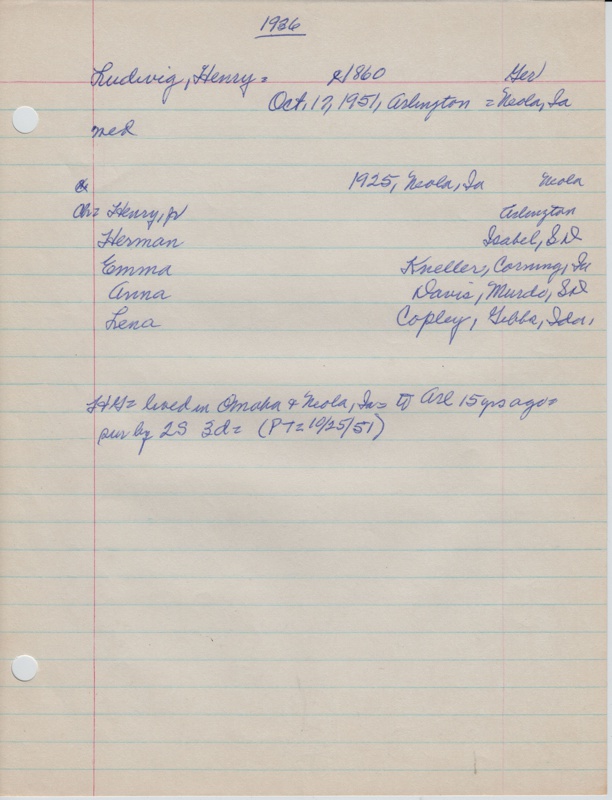 1936
Ludwig, Henry = c1860 Ger
Oct, 17, 1951, Arlington = Neola, Ia
med
1925, Neola, Ia Neola
Ch = Henry, jr Arlington
Herman Isabel, SD
Emma Kneller, Corning, Ia
Anna Davis, Murdo, SD
Lena Copley, Gibbs, Ida.
lived in Omaha & Neola, Ia = to Arl 15 yrs ago =
sur by 2S 3d = (PT = 10/25/51)